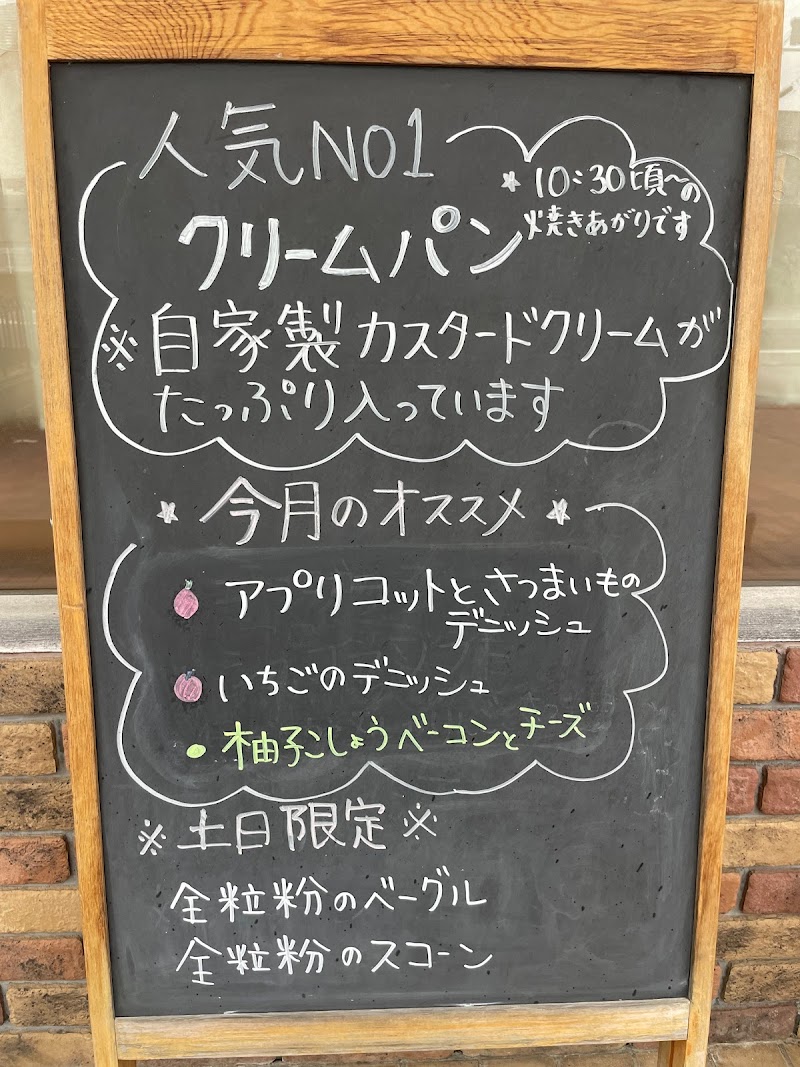 人気NO1
★10:30頃〜の
焼きあがりです
クリームパン
※自家製カスタードクリームが
たっぷり入っています
★今月のオススメ★
アプリコットとさつまいもの
デニッシュ
いちごのデニッシュ
・柚子こしょうベーコンとチーズ
※土日限定※
全粒粉のベーグル
全粒粉のスコーン